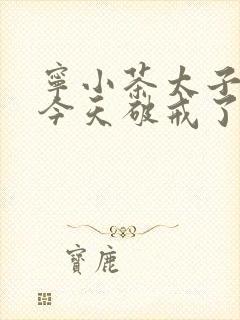 寧小茶太子
今天破戒了
寶鹿